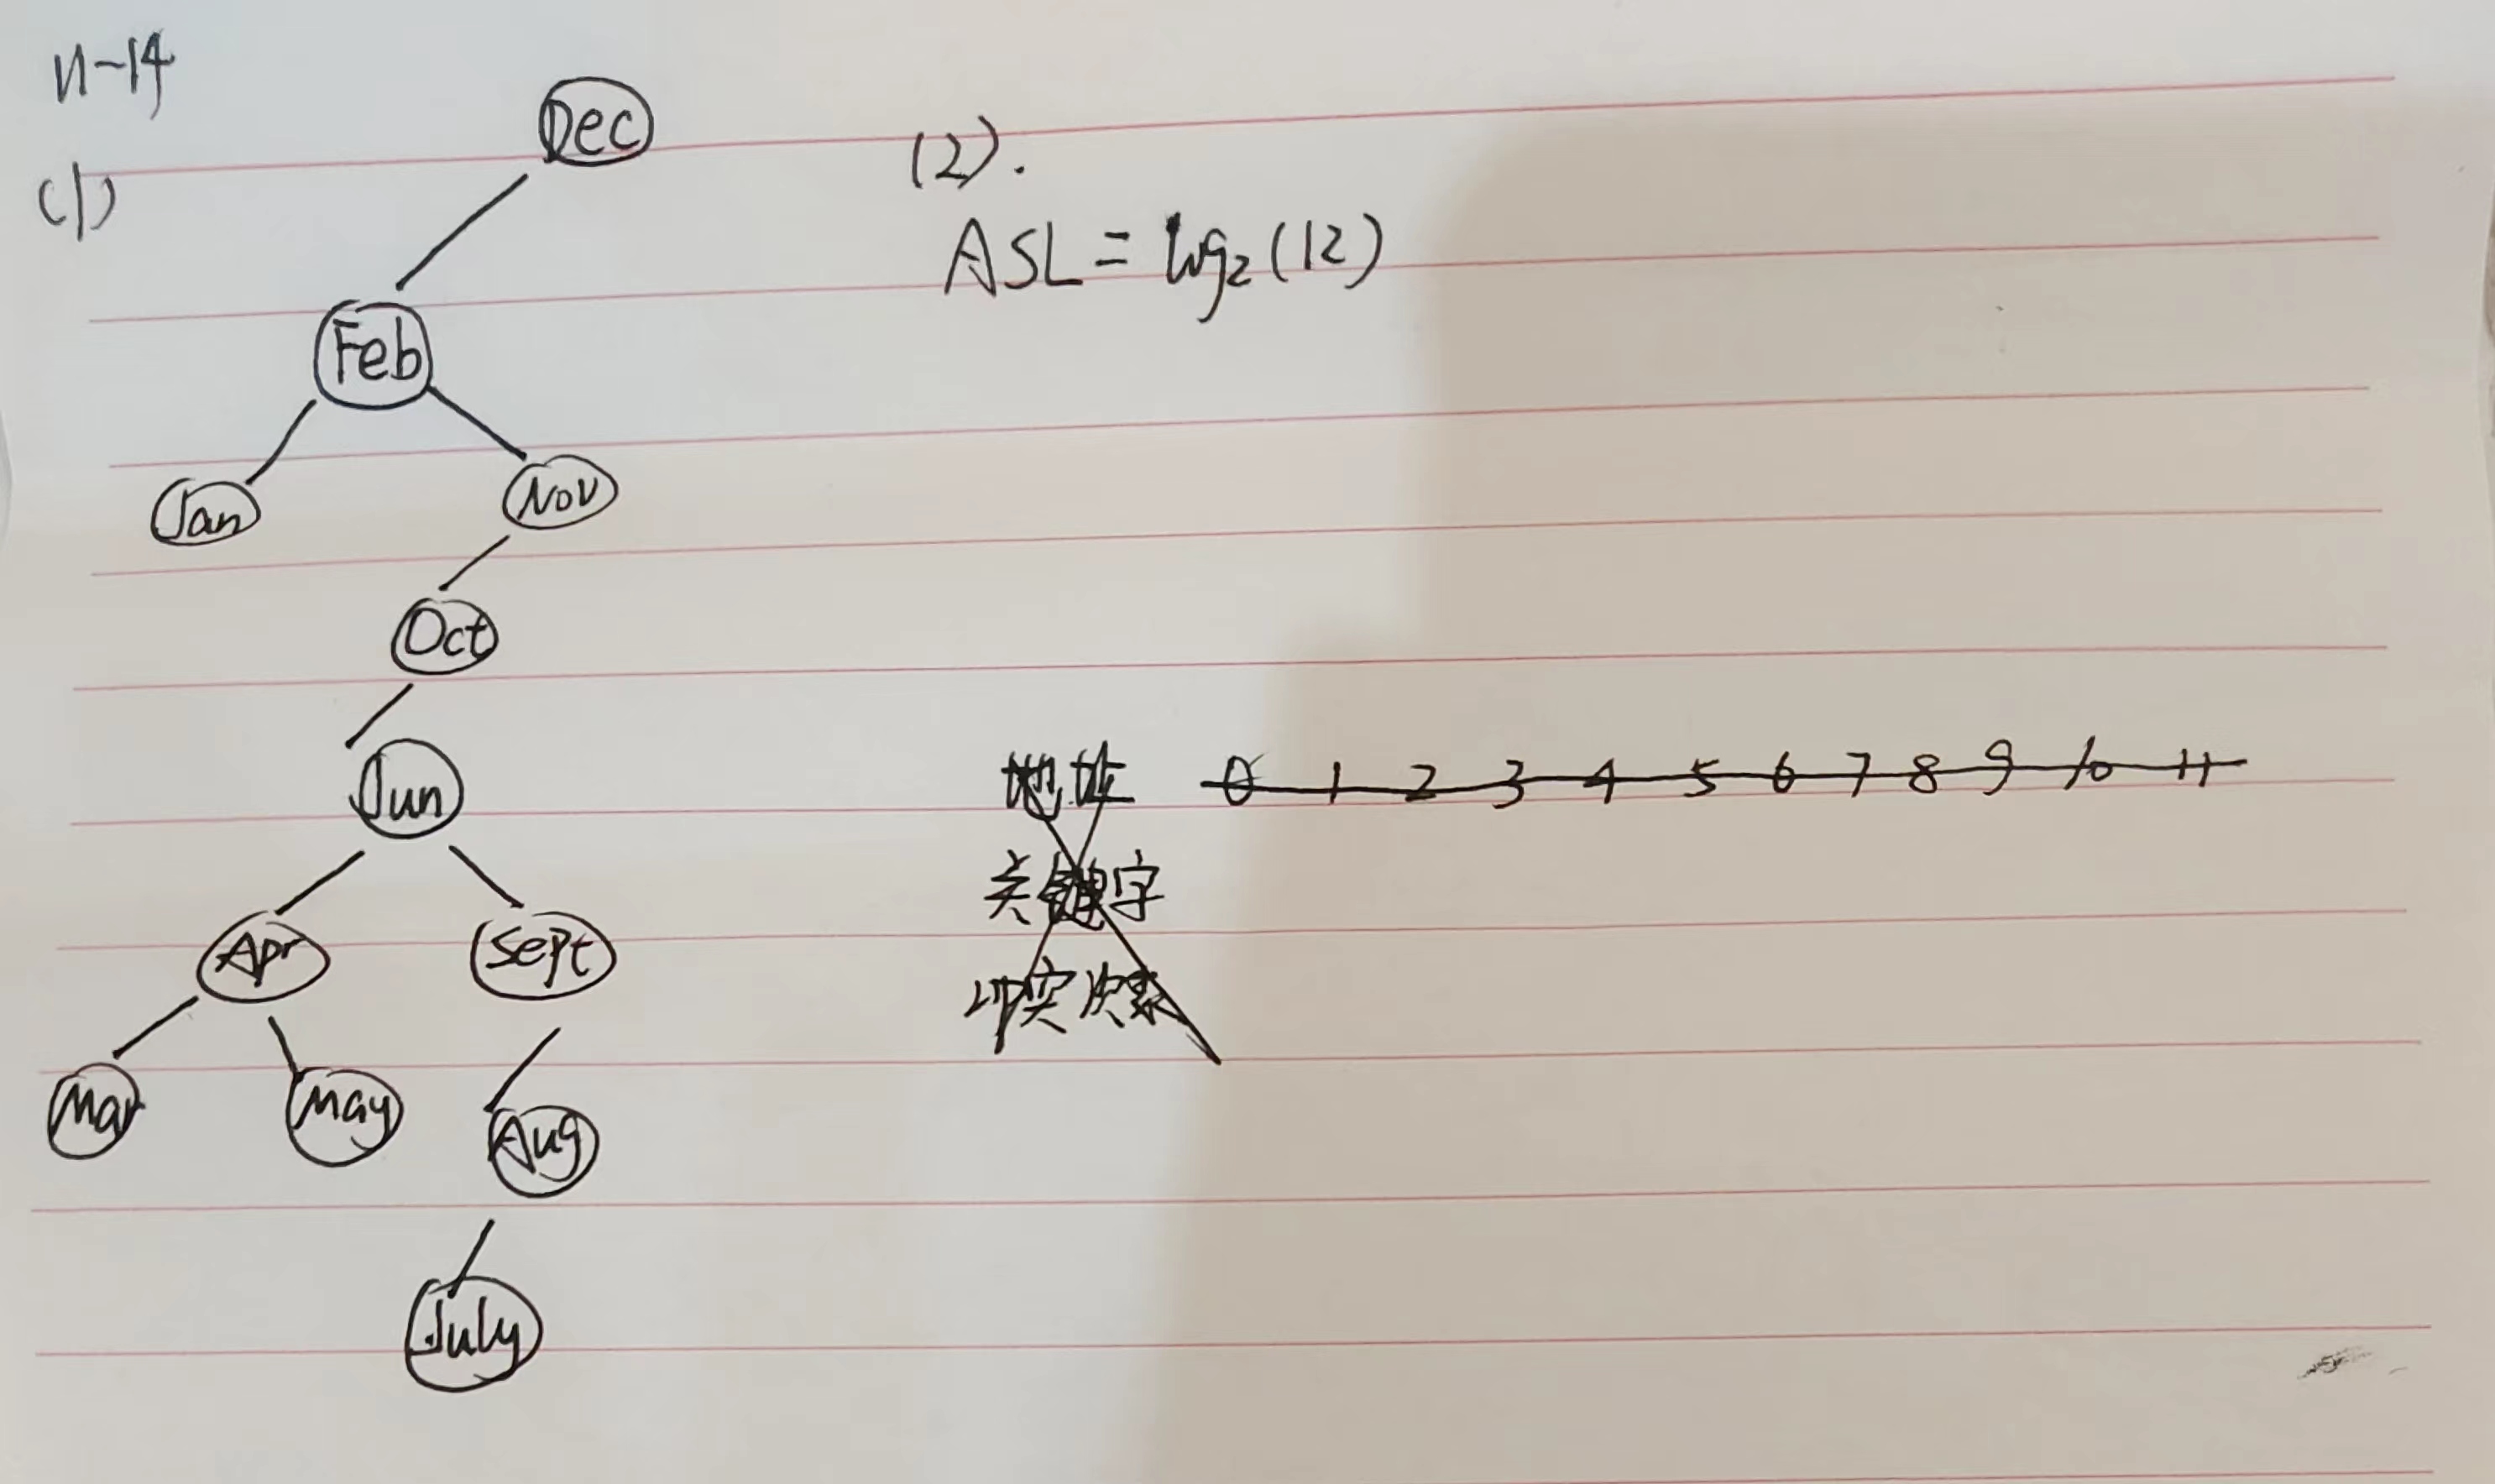 11-14
(1)
Dec
Feb
Jan Nov
Oct
Jun
Apr Sept
Mar May Aug
July
(2).
ASL = log₂(12)
地址 0 1 2 3 4 5 6 7 8 9 10 11
关键字
冲突次数